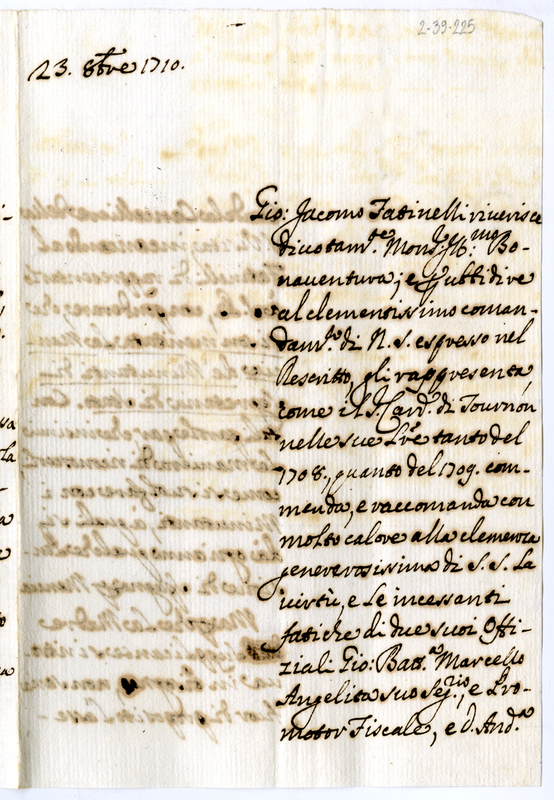 2-39-225
23. 8bre 1710.
Gio: Jacomo Fatinelli riverisce
divotam.te Mons.r Ill.mo Bo-
naventura; e p ubbidire
al clementissimo coman-
dam.to di N. S. espresso nel
Rescritto, gli rappresenta,
come il S. Card. di Tournon
nelle sue L're tanto del
1708., quanto del 1709. com-
menda, e raccomanda con
molto calore alla clemenza
generosissima di S. S. la
virtù, e le incessanti
fatiche di due suoi Offi-
ziali Gio: Batt.a Marcello
Angelita suo Seg.rio, e Pro-
motor Fiscale, e d. And.a